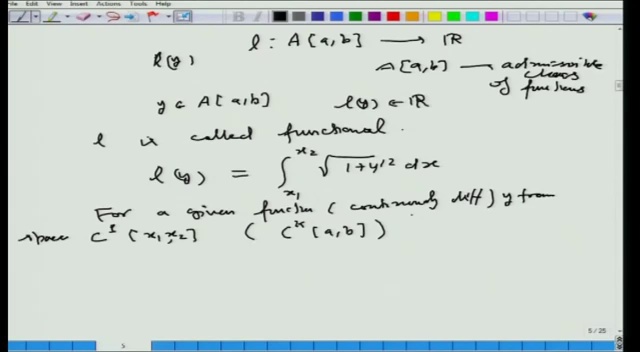 File Edit View Insert Actions Tools Help
l : A[a,b] → ℝ
l(y)
A[a,b] — admissible class of functions
y ∈ A[a,b] l(y) ∈ ℝ
l is called functional.
l(y) = ∫_{x₁}^{x₂} √(1+y'²) dx
For a given function (continuously diff) y from
space C¹[x₁,x₂] ( [a,b])
5 / 25
5